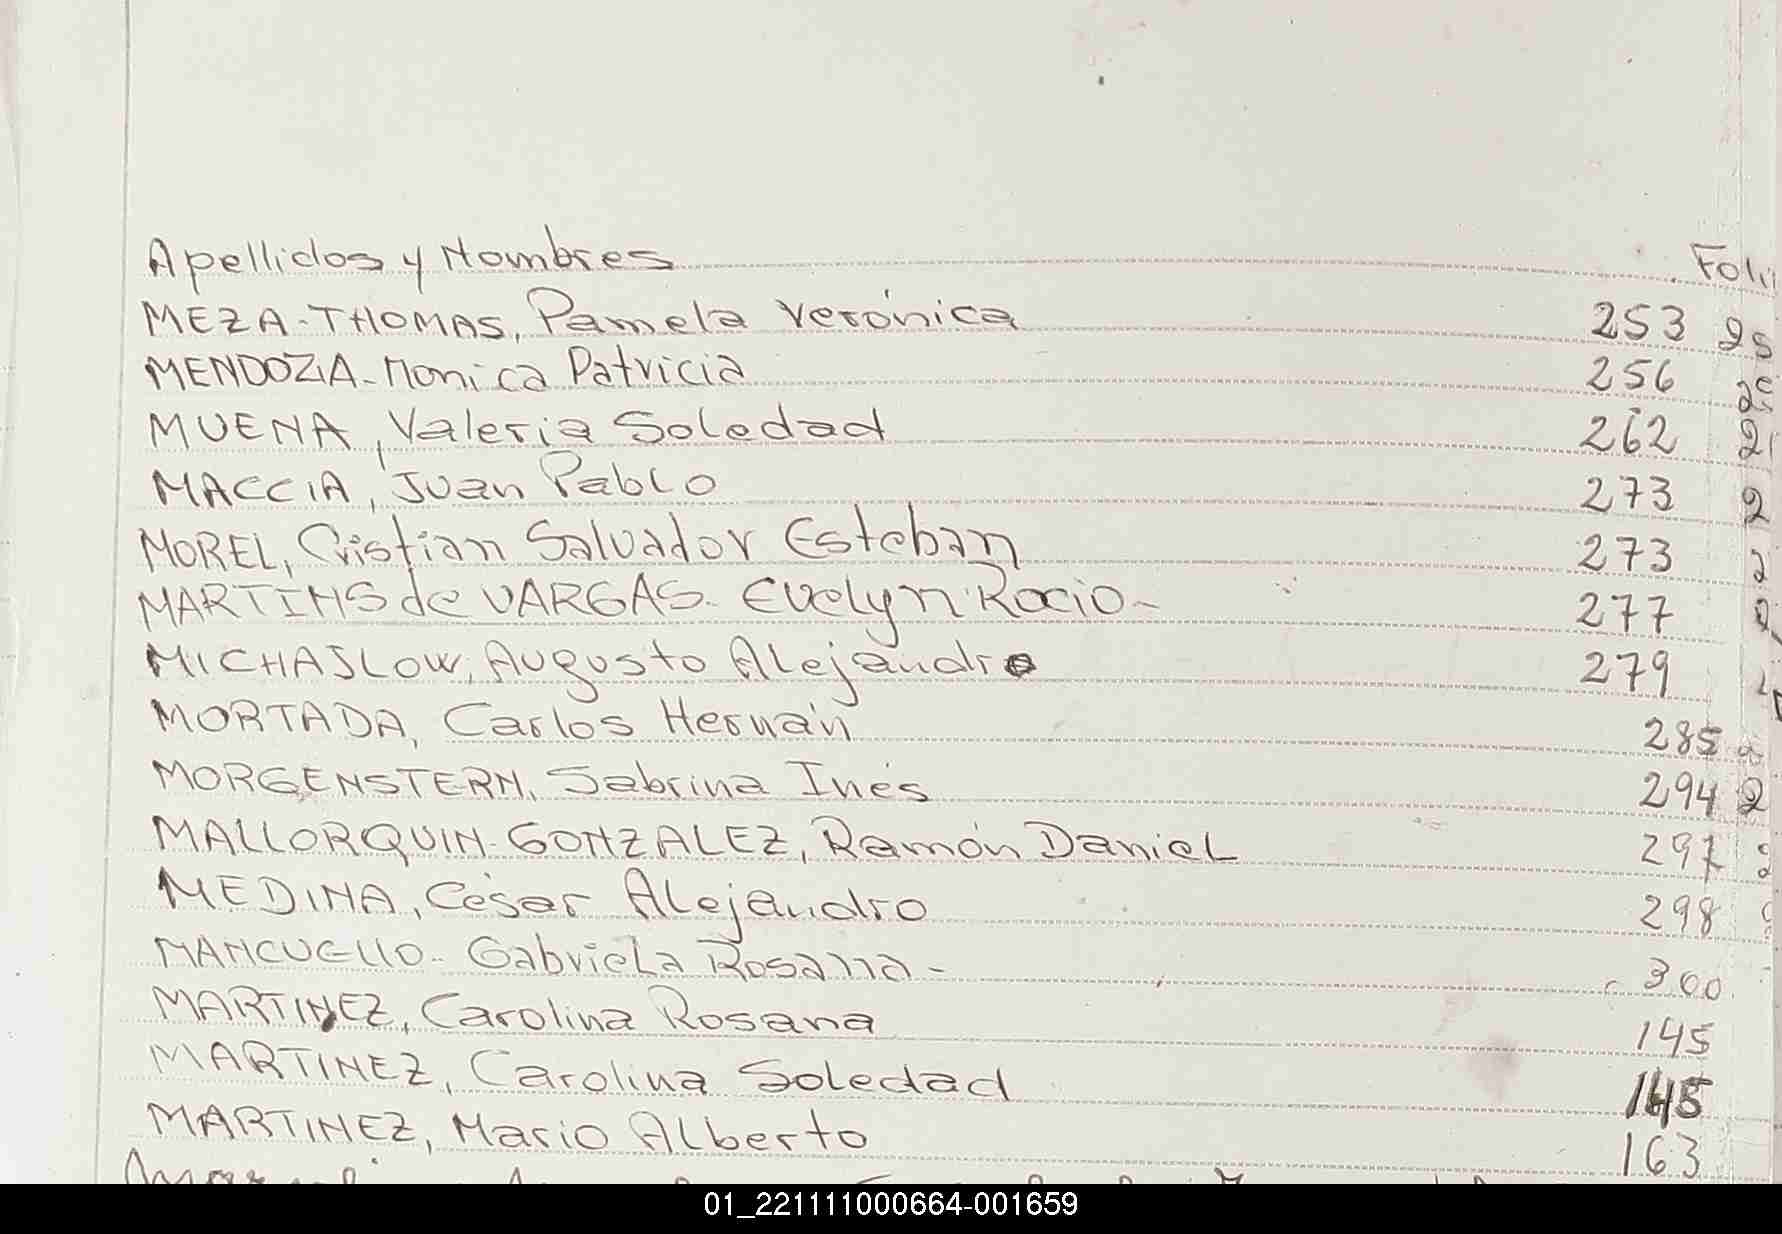 Apellidos y Nombres Foli
MEZA-THOMAS, Pamela Verónica 253 25
MENDOZA- Monica Patricia 256 25
MUENA, Valeria Soledad 262 2
MACCIA, Juan Pablo 273 2
MOREL, Cristian Salvador Esteban 273 2
MARTINS de VARGAS- Evelyn Rocio- 277 2
MICHAJLOW, Augusto Alejandro 279
MORTADA, Carlos Hernán 285 2
MORGENSTERN, Sabrina Inés 294 2
MALLORQUIN-GONZALEZ, Ramón Daniel 297 2
MEDINA, César Alejandro 298
MANCUELLO- Gabriela Rosana- 300
MARTINEZ, Carolina Rosana 145
MARTINEZ, Carolina Soledad 145
MARTINEZ, Mario Alberto 163
01_221111000664-001659